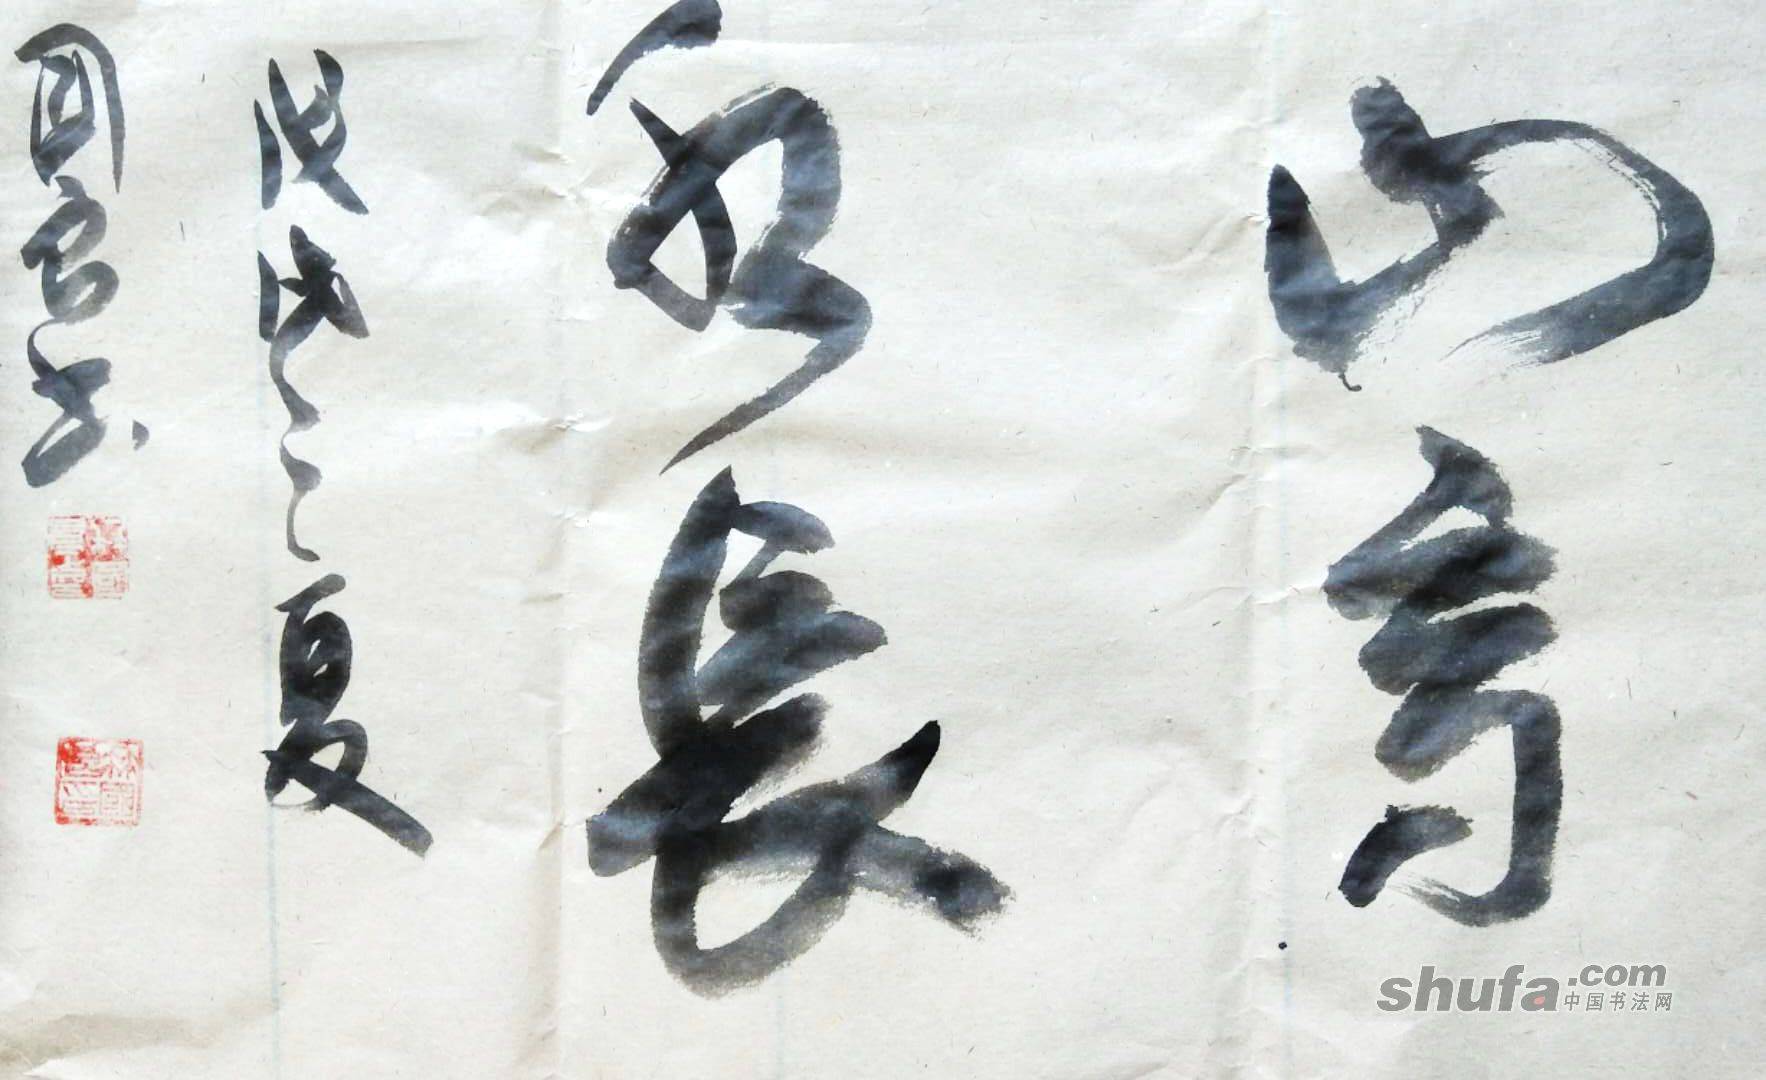 山高
水長
戊戌之夏
国良书
shufa.com
中国书法网